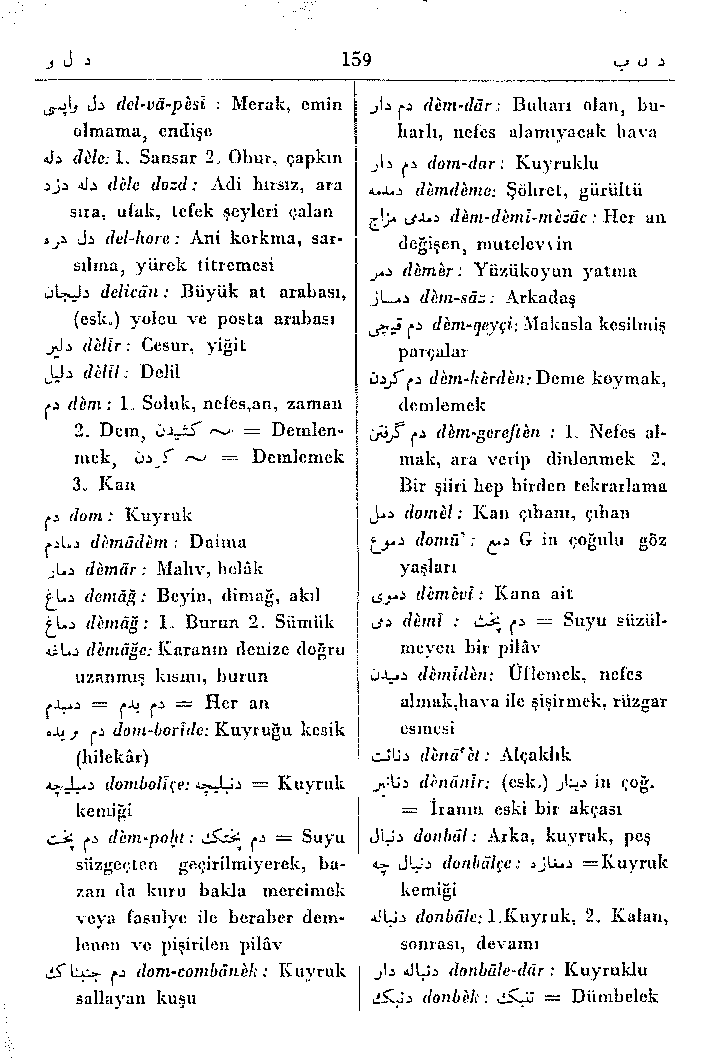 د ل و 159 د ن ب
دل واپسی del-vā-pèsī : Merak, emin
olmama, endişe
دله dèle: 1. Sansar 2. Obur, çapkın
دله دزد dèle dozd: Adi hırsız, ara
sıra, ufak, tefek şeyleri çalan
دل دره del-hore: Ani korkma, sar-
sılma, yürek titremesi
دلیجان delicān: Büyük at arabası,
(esk.) yolcu ve posta arabası
دلیر dèlīr: Cesur, yiğit
دلیل dèlīl: Delil
دم dèm: 1. Soluk, nefes,an, zaman
2. Dem, ~ کشیدن = Demlen-
mek, ~ کردن = Demlemek
3. Kan
دم dom: Kuyruk
دمادم dèmādèm: Daima
دمار dèmār: Mahv, helâk
دماغ demāğ: Beyin, dimağ, akıl
دماغ dèmāğ: 1. Burun 2. Sümük
دماغه dèmāğe: Karanın denize doğru
uzanmış kısmı, burun
دمبدم = دم بدم = Her an
دم بریده dom-borīde: Kuyruğu kesik
(hilekâr)
دمبلیچه dombolīçe: دنبلیچه = Kuyruk
kemiği
دم پخت dèm-poht: دم پختك = Suyu
süzgeçten geçirilmiyerek, ba-
zan da kuru bakla mercimek
veya fasulye ile beraber dem-
lenen ve pişirilen pilâv
دم جنبانك dom-combānèk: Kuyruk
sallayan kuşu
دم دار dèm-dār: Buharı olan, bu-
harlı, nefes alamıyacak hava
دم دار dom-dar: Kuyruklu
دمدمه dèmdème: Şöhret, gürültü
دمدمی مزاج dèm-dèmī-mèzāc: Her an
değişen, mutelevvin
دمر dèmèr: Yüzükoyun yatma
دمساز dèm-sāz: Arkadaş
دم قیچی dèm-qeyçi: Makasla kesilmiş
parçalar
دم کردن dèm-kèrdèn: Deme koymak,
demlemek
دم گرفتن dèm-gereftèn : 1. Nefes al-
mak, ara verip dinlenmek 2.
Bir şiiri hep birden tekrarlama
دمل domèl: Kan çıbanı, çıban
دموع domū': دمع G in çoğulu göz
yaşları
دموی dèmèvī: Kana ait
دمی dèmī : دم پخت = Suyu süzül-
meyen bir pilâv
دمیدن dèmīdèn: Üflemek, nefes
almak,hava ile şişirmek, rüzgar
esmesi
دنائت dènā'èt: Alçaklık
دنانیر dènānīr: (esk.) دینار in çoğ.
= İranın eski bir akçası
دنبال donbāl: Arka, kuyruk, peş
دنبال چه donbālçe: دمغازه =Kuyruk
kemiği
دنباله donbāle: 1.Kuyruk, 2. Kalan,
sonrası, devamı
دنباله دار donbāle-dār: Kuyruklu
دنبك donbèk: تنبك = Dümbelek